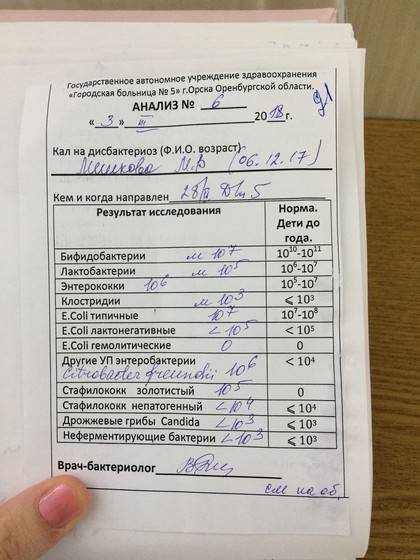 Государственное автономное учреждение здравоохранения
«Городская больница № 5» г.Орска Оренбургской области.
АНАЛИЗ № 6
«3» III 2018г.
Кал на дисбактериоз (Ф.И.О. возраст)
М.В (06.12.17)
Кем и когда направлен 28/II 5
Результат исследования Норма. Дети до года.
Бифидобактерии м 10⁷ 10¹⁰-10¹¹
Лактобактерии м 10⁵ 10⁶-10⁷
Энтерококки 10⁶ 10⁵-10⁷
Клостридии м 10³ ⩽ 10³
E.Coli типичные 10⁷ 10⁷-10⁸
E.Coli лактонегативные < 10⁵ < 10⁵
E.Coli гемолитические 0 0
Другие УП энтеробактерии < 10⁴
Citrobacter freundii 10⁶
Стафилококк золотистый 10⁵ 0
Стафилококк непатогенный < 10⁴ ⩽ 10⁴
Дрожжевые грибы Candida < 10³ ⩽ 10³
Неферментирующие бактерии < 10³ ⩽ 10³
Врач-бактериолог
см на об.